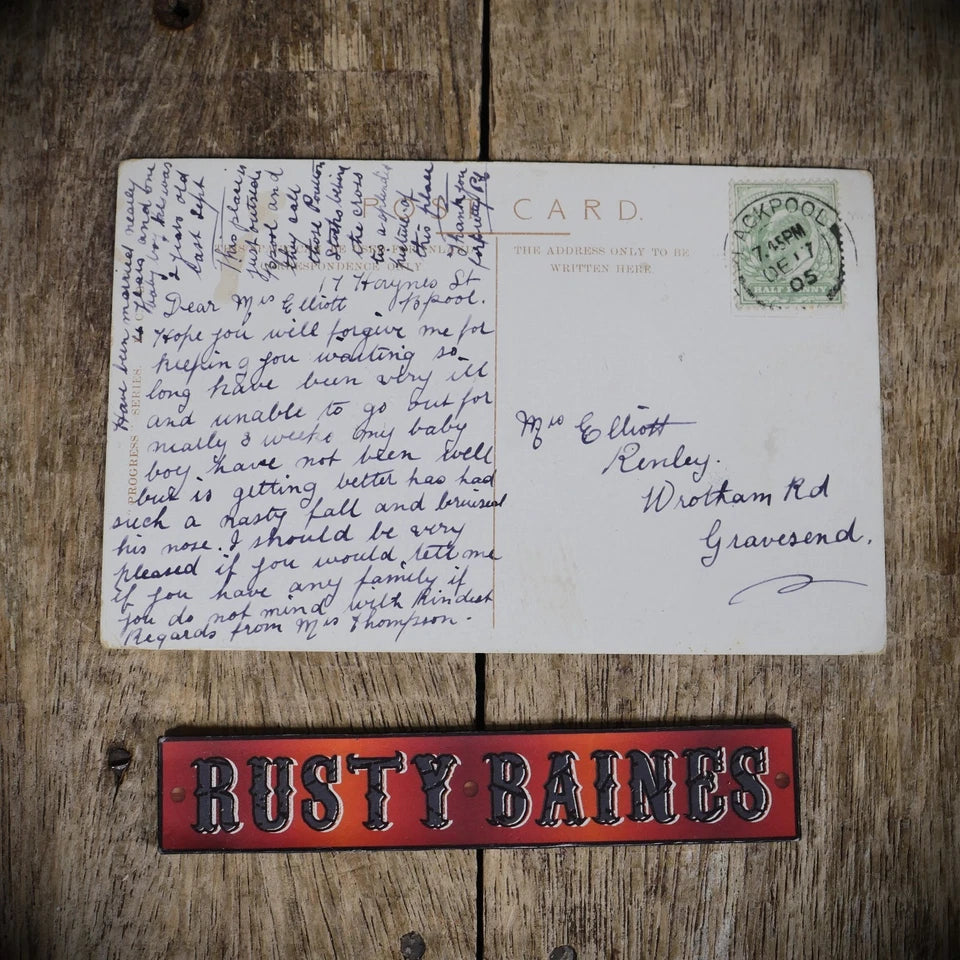 POST CARD.
CORRESPONDENCE ONLY
THE ADDRESS ONLY TO BE
WRITTEN HERE
PROGRESS SERIES.
BLACKPOOL
7.45PM
DE 17
05
HALF PENNY
17 Haynes St
B'pool.
Dear Mrs Elliott
Hope you will forgive me for
keeping you waiting so
long have been very ill
and unable to go out for
nearly 3 weeks my baby
boy have not been well
but is getting better has had
such a nasty fall and bruised
his nose. I should be very
pleased if you would tell me
if you have any family if
you do not mind with Kindest
Regards from Mrs Thompson.
Have been married nearly
4 years and one
baby boy he was
2 years old
last Sept
This place is
just outside
B'pool and
they call
those Poulton
Stocks being
the cross
to
picture of
this place
Thank you
for pretty P.C.
Mrs Elliott
Renley.
Wrotham Rd
Gravesend.
RUSTY BAINES